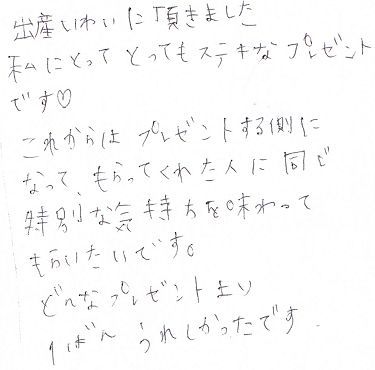 出産いわいに頂きました
私にとって とってもステキなプレゼント
です♡
これからは プレゼントする側に
なって、もらってくれた人に同じ
特別な気持ちを味わって
もらいたいです。
どんなプレゼントより
1ばん うれしかったです